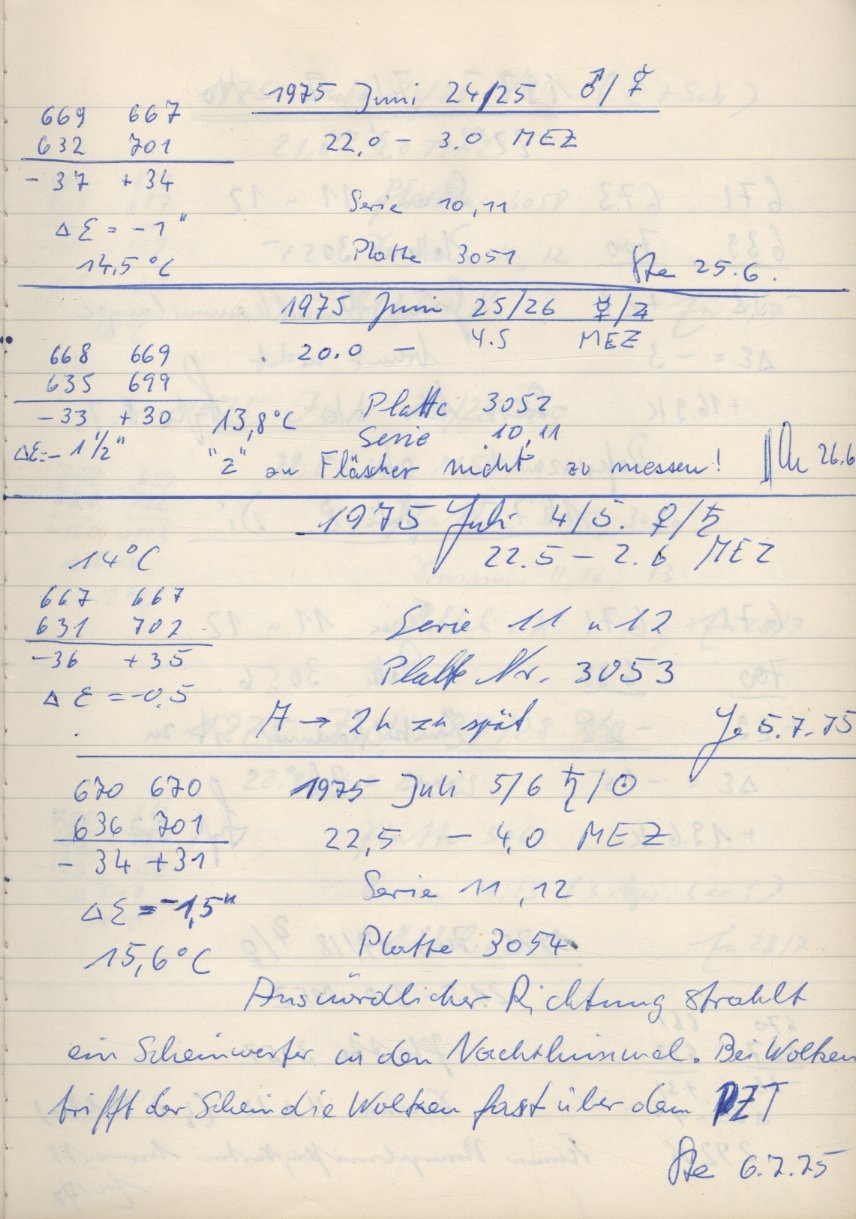 1975 Juni 24/25 ♂/☿
669 667
632 701
22,0 – 3.0 MEZ
- 37 + 34
Serie 10,11
Δ Σ = - 1"
Platte 3051
14,5 °C
Ste 25.6.
1975 Juni 25/26 ☿/♃
20.0 – 4.5 MEZ
668 669
635 699
- 33 + 30
13,8 °C
Platte 3052
Serie 10,11
ΔΣ = - 1 ½"
"Z" an Fläscher nicht zu messen!
26.6
1975 Juli 4/5. ♀/♄
14°C
22.5 – 2.6 MEZ
667 667
631 702
Serie 11 u 12
-36 +35
Platte Nr. 3053
Δ Σ = -0,5
A → 2h zu spät
Je 5.7.75
670 670
1975 Juli 5/6 ♄/☉
636 701
22,5 – 4,0 MEZ
- 34 +31
Serie 11,12
ΔΣ = -1,5"
Platte 3054
15,6°C
Aus nördlicher Richtung strahlt
ein Scheinwerfer in den Nachthimmel. Bei Wolken
trifft der Schein die Wolken fast über dem PZT
Ste 6.7.75